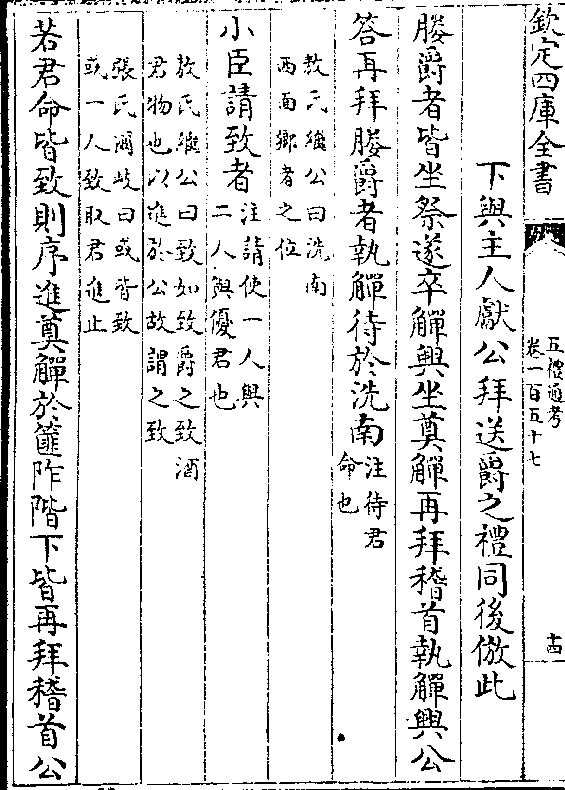 欽定四庫全書
五禮通考
卷一百五十七
十四
下與主人獻公拜送爵之禮同後倣此
媵爵者皆坐祭遂卒觶興坐奠觶再拜稽首執觶興公
答再拜媵爵者執觶待於洗南
注待君
命也
敖氏繼公曰洗南
西面鄉者之位
小臣請致者
注請使一人與
二人與優君也
敖氏繼公曰致如致爵之致酒
君物也以進於公故謂之致
張氏爾岐曰或皆致
或一人致取君進止
若君命皆致則序進奠觶於篚阼階下皆再拜稽首公